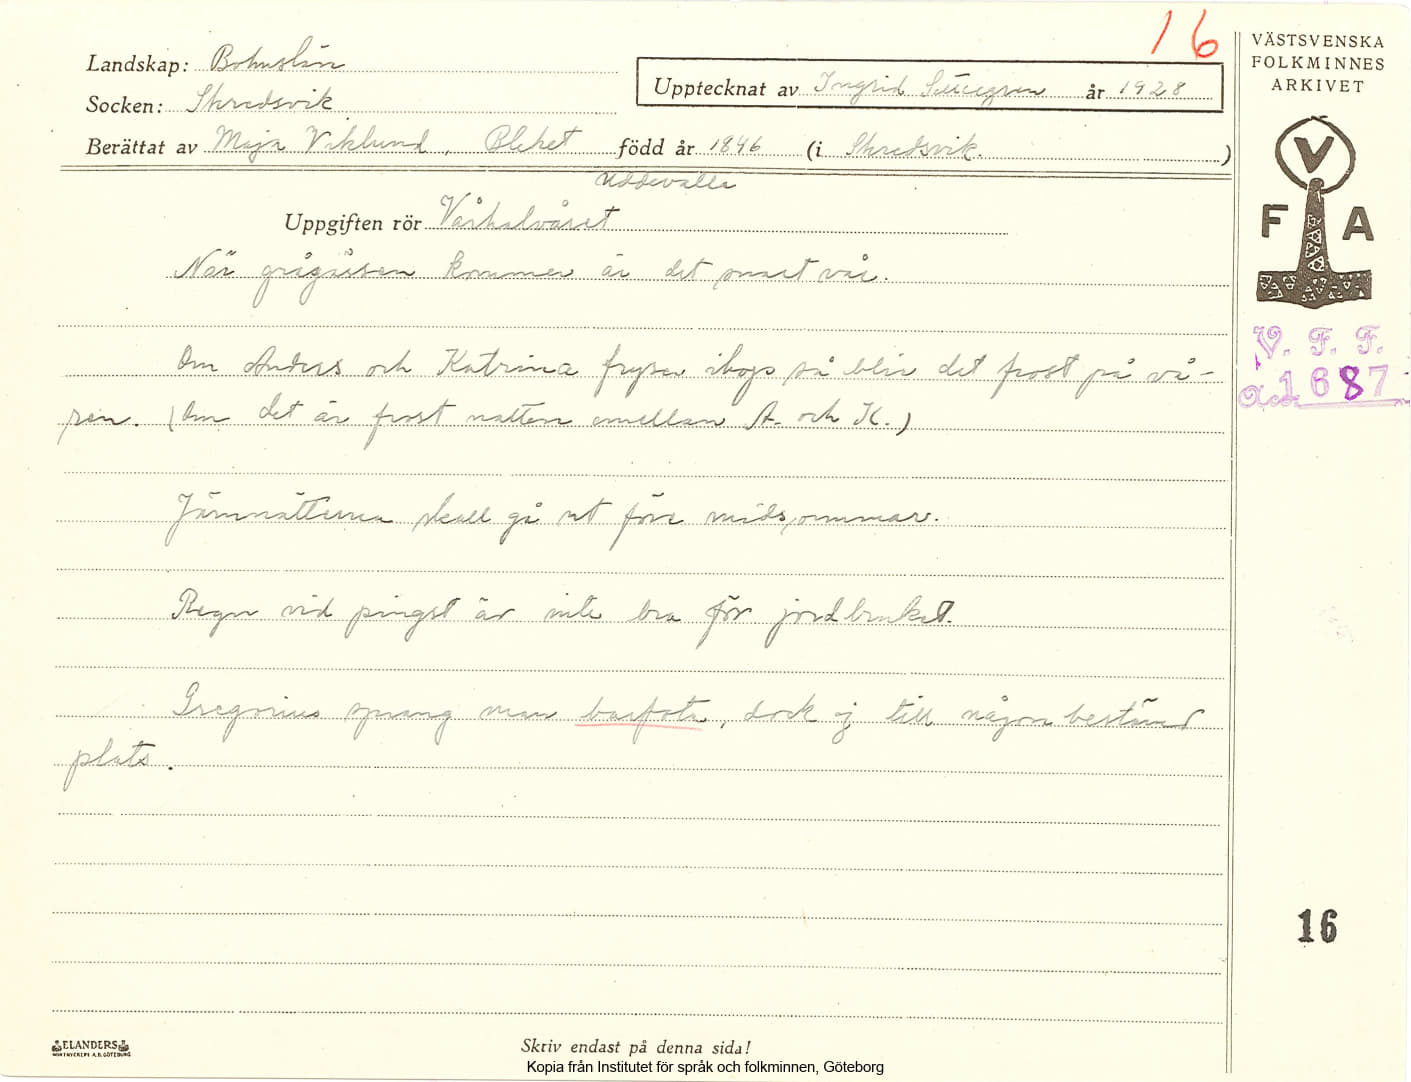 16
Landskap: Bohuslän
VÄSTSVENSKA
FOLKMINNES
ARKIVET
Upptecknat av Ingrid år 1928
Socken: Skredsvik
Berättat av Maja Viklund, Bleket född år 1846 (i Skredsvik.)
Uddevalla
V
F A
Uppgiften rör Vårhalvåret
När grågåsen kommer är det snart vår.
V. F. F.
Acc. 1687
Om Anders och Katrina fryser ihop så blir det frost på vå-
ren. (Om det är frost natten emellan A. och K.)
Järnnätterna skall gå ut före midsommar.
Regn vid pingst är inte bra för jordbruket.
Gregorius sprang man barfota, dock ej till någon bestämd
plats.
16
ELANDERS
BOKTRYCKERI A.B. GÖTEBORG
Skriv endast på denna sida!
Kopia från Institutet för språk och folkminnen, Göteborg